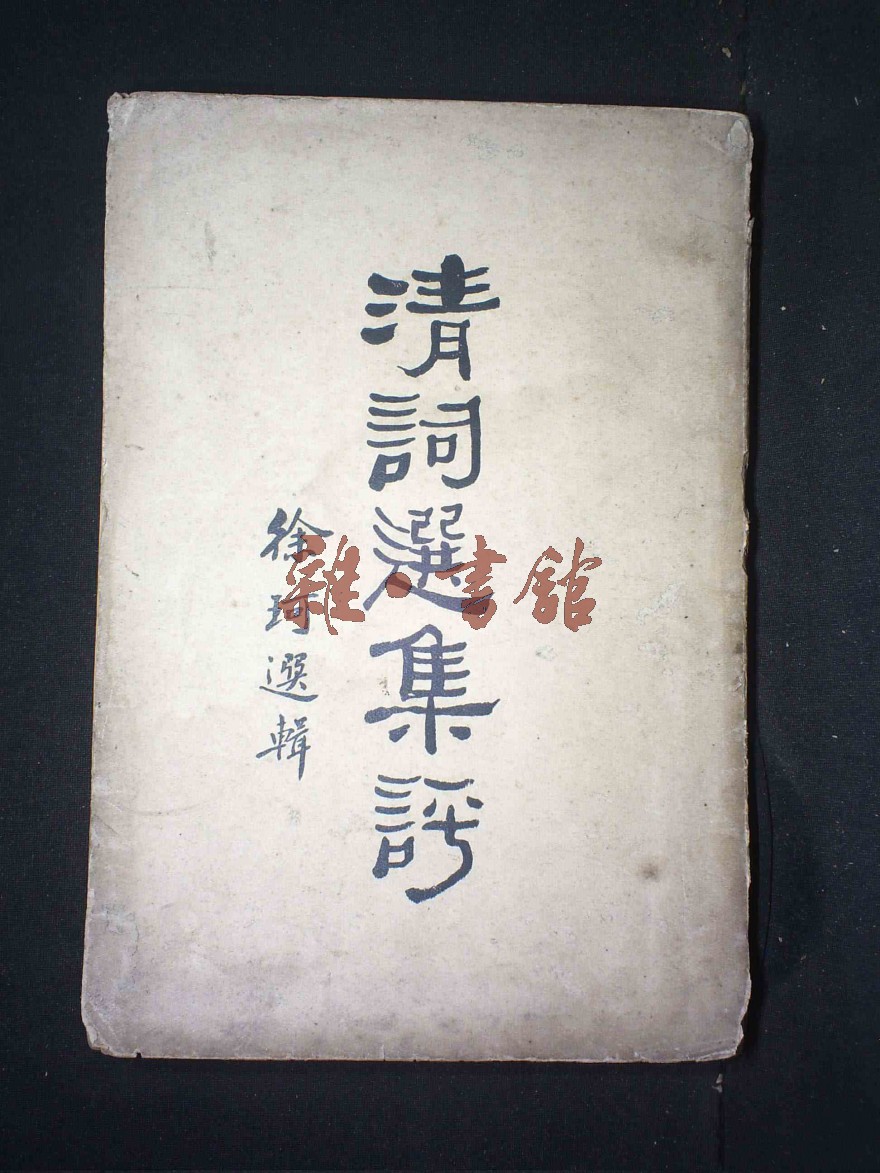 清詞選集評
徐珂選輯
雜·書館